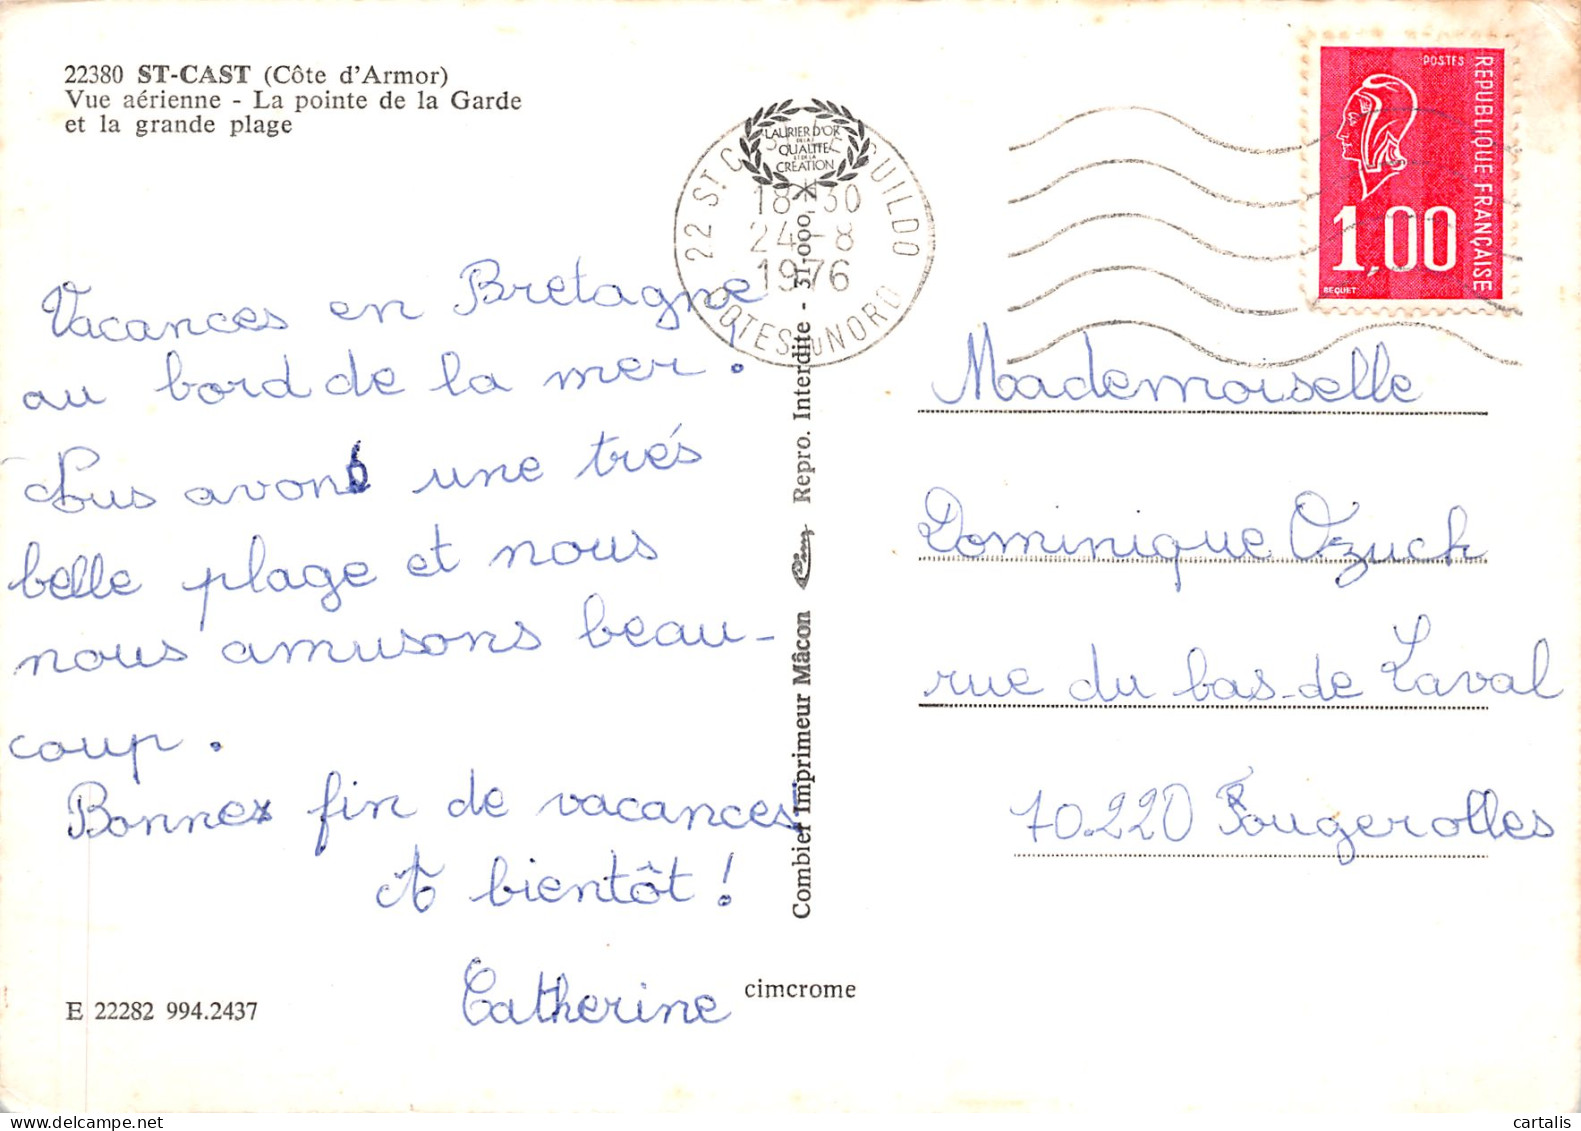 22380 ST-CAST (Côte d'Armor)
Vue aérienne - La pointe de la Garde
et la grande plage
LAURIER D'OR
DE LA
QUALITE
ET DE LA
CREATION
22 ST C GUILDO
18-30
24-8
1976
COTES DU NORD
POSTES
REPUBLIQUE FRANÇAISE
1,00
BEQUET
Vacances en Bretagne
au bord de la mer.
Nous avons une trés
belle plage et nous
nous amusons beau-
coup.
Bonnes fin de vacances
A bientôt !
Catherine
Combier Imprimeur Mâcon Cim Repro. Interdite - 31.000
Mademoiselle
Dominique Ozuch
rue du bas-de Laval
70.220 Fougerolles
E 22282 994.2437
cimcrome
cartalis